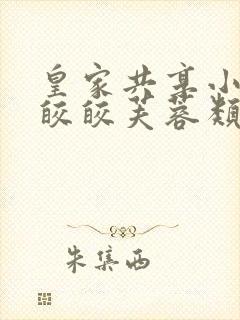 皇家共享小
皎皎芙蓉颓
朱集西